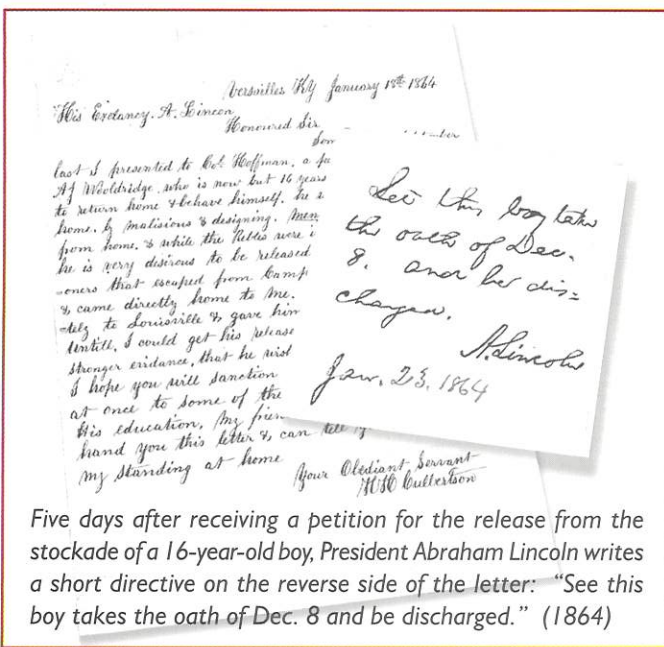 Versailles Ky January 18th 1864
His Exelancy. A. Lincon
Honoured Sir
last I presented to Col. Hoffman, a
AJ Wooldridge. who is now but 16 years
to return home & behave himself. he
home. by malisious & designing. Men
from home. & while the Rebles were
he is very desirous to be released
-oners that escaped from Camp
& came directly home to me.
-tely to Louisville & gave him
Untill, I could get his release
stronger evidance, that he
I hope you will sanction
at once to some of the
His education, My
hand you this letter & can tell
my standing at home
Your Obediant Servant
Culbertson
Let this boy take
the oath of Dec.
8. and be dis=
charged.
A. Lincoln
Jan. 23, 1864
Five days after receiving a petition for the release from the
stockade of a 16-year-old boy, President Abraham Lincoln writes
a short directive on the reverse side of the letter: "See this
boy takes the oath of Dec. 8 and be discharged." (1864)